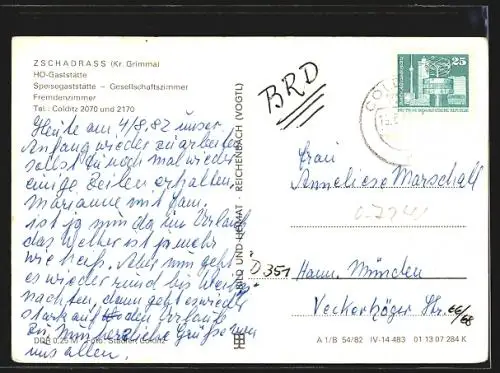 ZSCHADRASS (Kr. Grimma)
HO-Gaststätte
Speisegaststätte – Gesellschaftszimmer
Fremdenzimmer
Tel.: Colditz 2070 und 2170
Heute am 4/8.82 unser
Anfang wieder zu arbeiten
sollst Du noch mal wieder
einige Zeilen erhalten,
Marianne mit Fam.
ist ja nun da im Urlaub
das Wetter ist ja mehr
wie heiß. Aber nun geht
es wieder rund bis Weih
nachten, dann geht es wieder
stark auf den Urlaub
zu. Nun herzliche Grüße von
uns allen.
DDR 0,25 M
BILD UND HEIMAT · REICHENBACH (VOGTL)
BRD
25
Frau
Anneliese Marschall
D 351
Hann. Münden
Veckerhäger Str. 66/68
A 1/B 54/82 IV-14-483 01 13 07 284 K